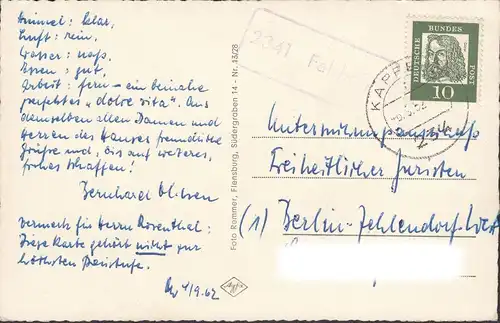 Himmel: klar,
Luft: rein,
Wasser: naß,
Essen: gut,
Arbeit: fern – ein beinahe
perfektes „dolce vita“. Aus
demselben allen Damen und
Herren des Hauses freundliche
Grüße und, bis auf weiteres,
frohes Schaffen!
Bernhard
Vermerk für Herrn Rosenthal:
Diese Karte gehört nicht zur
höchsten Preisstufe.
4/9.62
Foto Rammer, Flensburg, Südergraben 14 - Nr. 13/28
Agfa
2341
KAPPE
DEUTSCHE BUNDES POST
10
Untersuchungsausschuß
Freiheitlicher Juristen
(1) Berlin-Zehlendorf-West